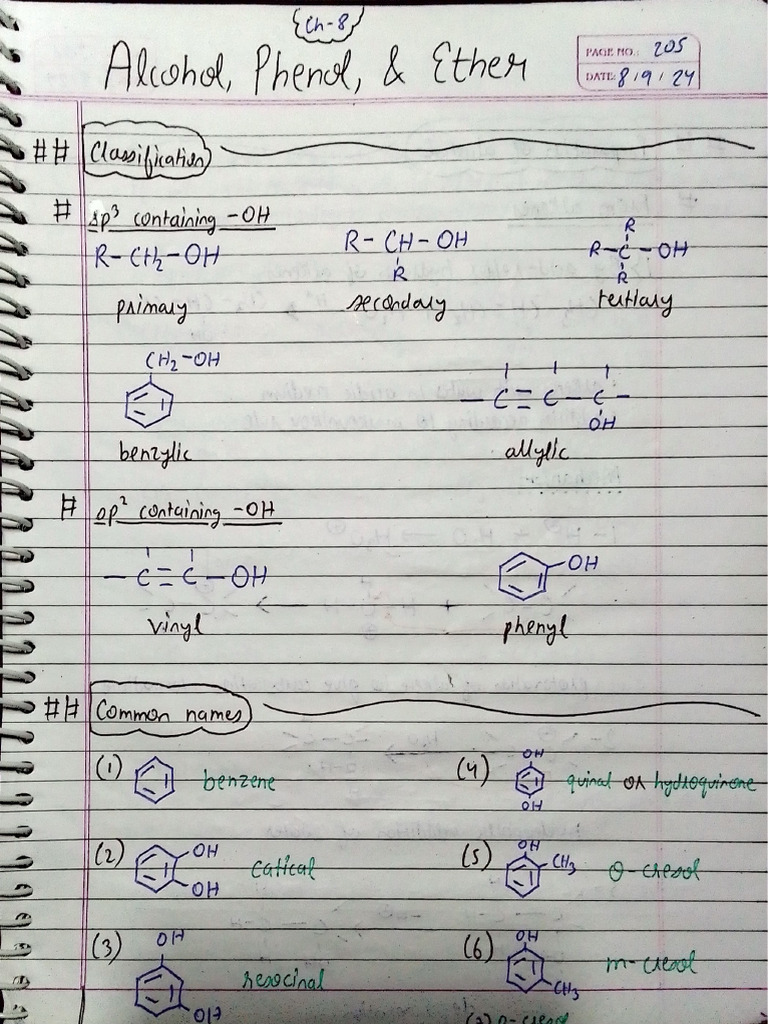 Ch-8
Alcohol, Phenol, & Ether
PAGE NO.: 205
DATE: 8/9/24
## Classification
# sp³ containing -OH
R-CH₂-OH
R-CH-OH
R
R
R-C-OH
R
primary
secondary
tertiary
CH₂-OH
-C=C-C-
OH
benzylic
allylic
# sp² containing -OH
-C=C-OH
OH
vinyl
phenyl
## Common names
(1) benzene
(4) OH
OH
quinal or hydroquinone
(2) OH
OH
catical
(5) OH
CH₃
o-cresol
(3) OH
OH
resocinal
(6) OH
CH₃
m-cresol
(7) p-cresol